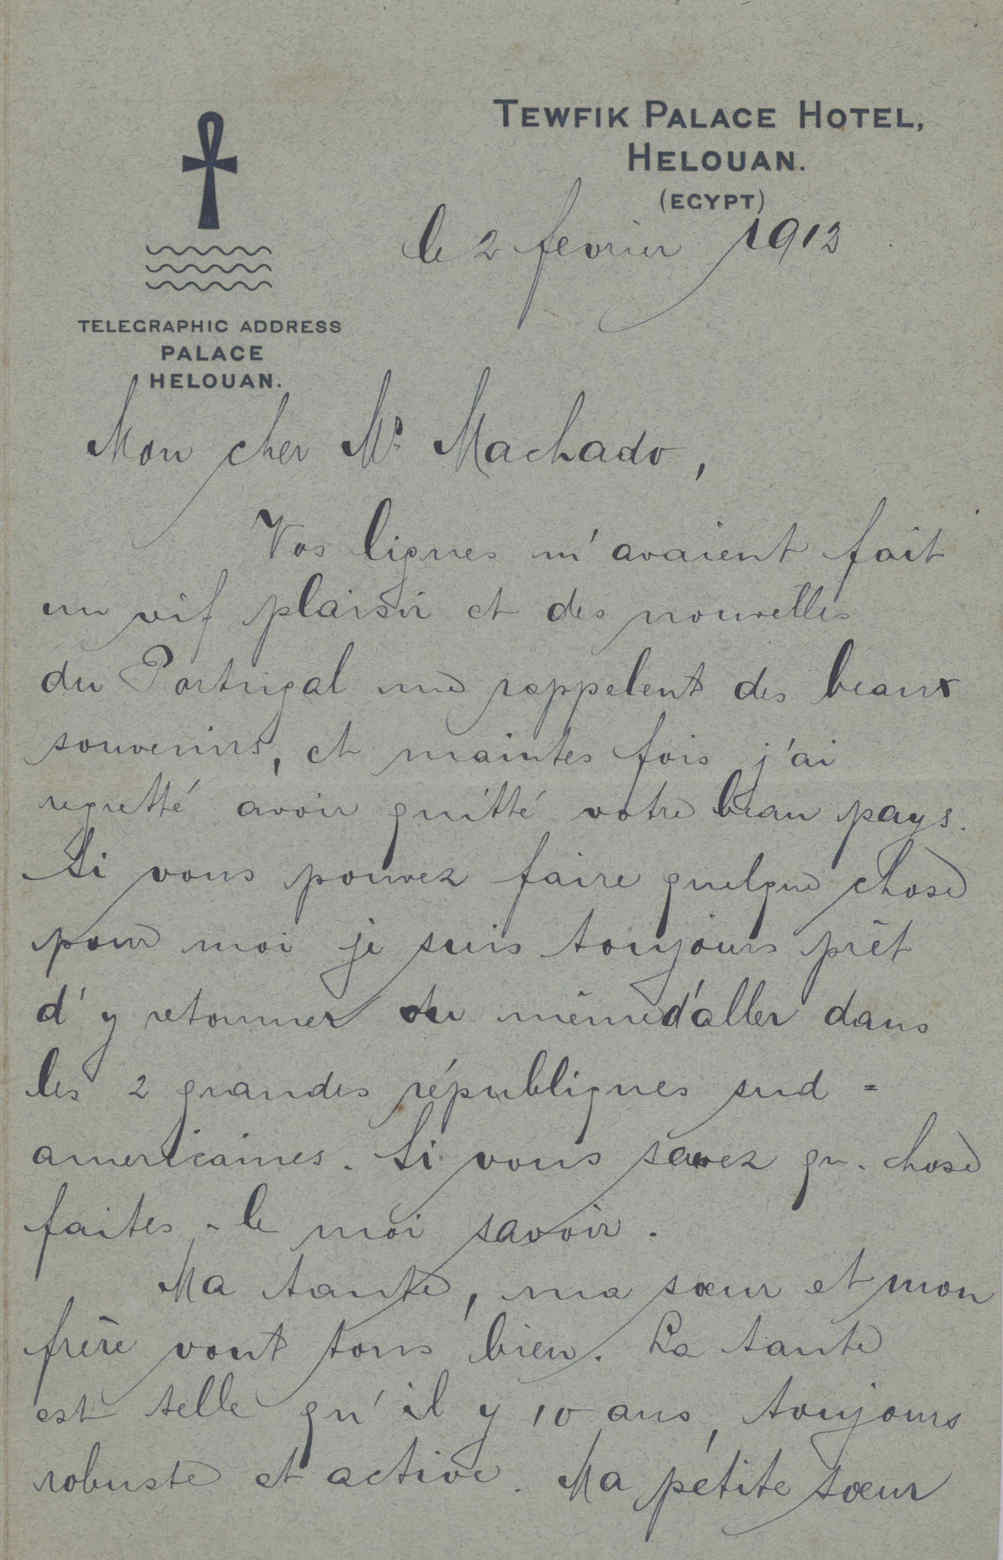 TEWFIK PALACE HOTEL,
HELOUAN.
(EGYPT)
le 2 fevrier 1912
TELEGRAPHIC ADDRESS
PALACE
HELOUAN.
Mon cher Mr Machado,
Vos lignes m'avaient fait
un vif plaisir et des nouvelles
du Portugal me rappelent des beaux
souvenirs, et maintes fois j'ai
regretté avoir quitté votre beau pays.
Si vous pouvez faire quelque chose
pour moi je suis toujours prêt
d'y retourner ou même d'aller dans
les 2 grandes républiques sud =
americaines. Si vous savez qu. chose
faites-le moi savoir.
Ma tante, ma sœur et mon
frère vont tous bien. La tante
est telle qu'il y 10 ans, toujours
robuste et active. Ma pétite sœur